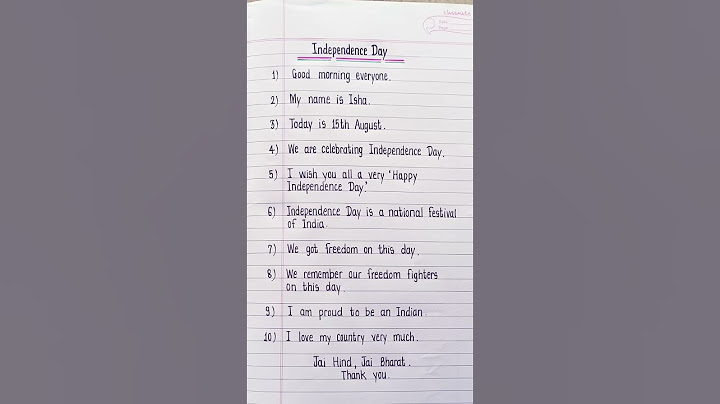 classmate
Date
Page
Independence Day
1) Good morning everyone.
2) My name is Isha.
3) Today is 15th August.
4) We are celebrating Independence Day.
5) I wish you all a very 'Happy
Independence Day.'
6) Independence Day is a national festival
of India.
7) We got freedom on this day.
8) We remember our freedom fighters
on this day.
9) I am proud to be an Indian.
10) I love my country very much.
Jai Hind, Jai Bharat.
Thank you.